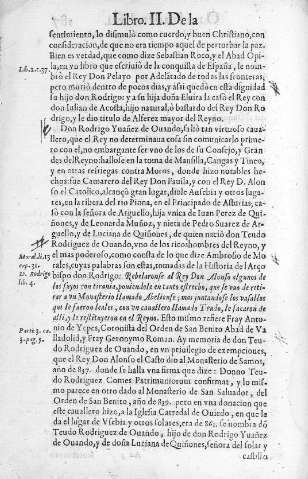 Libro. II. De la
sentimiento, lo dissimuló como cuerdo, y buen Christiano, con
consideracion, de que no era tiempo aquel de perturbar la paz.
Bien es verdad, que como dize Sebastian Roco, y el Abad Opi-
la, en vn libro que escriuió de la conquista de España, le nom-
bró el Rey Don Pelayo por Adelantado de todas las fronteras,
pero murió dentro de pocos dias, y assi quedò en esta dignidad
su hijo don Rodrigo: y a su hija doña Eluira la casó el Rey con
don Iulian de Acosta, hijo natural, o bastardo del Rey Don Ro-
drigo, y le dio titulo de Alferez mayor del Reyno.
Don Rodrigo Yuañez de Ouando, salió tan virtuoso caua-
llero, que el Rey no determinaua cosa sin comunicarlo prime-
ro con el, no embargante ser vno de los de su Consejo, y Gran-
des del Reyno: hallose en la toma de Mansilla, Cangas y Tineo,
y en otras refriegas contra Moros, donde hizo notables he-
chos: fue Camarero del Rey Don Fauila, y con el Rey D. Alon-
so el Catolico, alcançò gran lugar, diole Ausebia y otros luga-
res, en la ribera del rio Piana, en el Principado de Asturias, ca-
só con la señora de Arguello, hija vnica de Iuan Perez de Qui-
ñones, y de Leonarda Muñoz, y nieta de Pedro Suarez de Ar-
guello, y de Luciana de Quiñones, de quien nació don Teudo
Rodriguez de Ouando, vno de los ricos hombres del Reyno, y
el mas poderoso, como consta de lo que dize Ambrosio de Mo-
rales, cuyas palabras son estas, tomadas de la Historia del Arço-
bispo don Rodrigo: Rebelaronse al Rey Don Alonso algunos de
los suyos con tirania, poniendole en tanto estrecho, que se vuo de reti-
rar a vn Monasterio llamado Abeliense; mas juntandose los vasallos
que le fueron leales, con vn cauallero llamado Teudo, le sacaron de
alli, y le restituyeron en el Reyno. Esto mismo refiere Fray Anto-
nio de Yepes, Coronista del Orden de San Benito Abad de Va-
lladolid, y Fray Geronymo Roman. Ay memoria de don Teu-
do Rodriguez de Ouando, en vn priuilegio de exempciones,
que el Rey Don Alonso el Casto dio al Monasterio de Samos,
año de 837. donde se halla vna firma que dize: Donno Teudo
Rodriguez Comes Patrimoniorum confirmat, y lo mis-
mo parece en otro dado al Monasterio de San Saluador, del
Orden de San Benito, año de 839. pero en vna donacion que
este cauallero hizo, a la Iglesia Catredal de Ouiedo, en que la
da el lugar de Visebia y otros solares, era de 861. se nombra dō
Teudo Rodriguez de Ouando, hijo de don Rodrigo Yuañez
de Ouando, y de doña Luciana de Quiñones, señora del solar y
castillo
Lib. 2. c. 37.
rep. 31.
D. Rodrigo
lib. 4.
Parte 3. ce.
3. pag. 9.